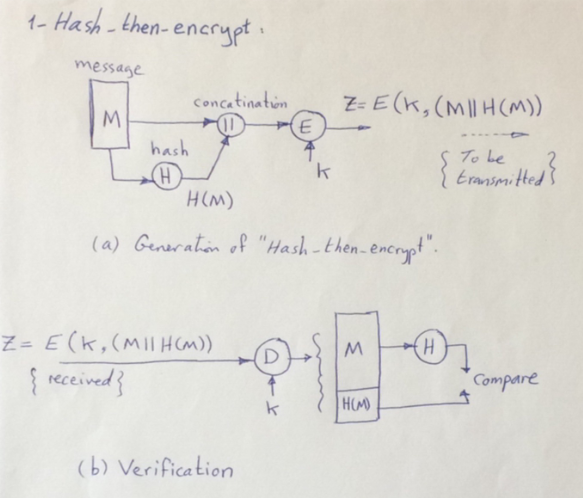 1- Hash-then-encrypt.
message
M
concatination
||
E
Z= E(K,(M||H(M))
{ To be
transmitted }
hash
H
K
H(M)
(a) Generation of "Hash-then-encrypt".
Z= E(K,(M||H(M))
{ received }
D
K
M
H
H(M)
Compare
(b) Verification